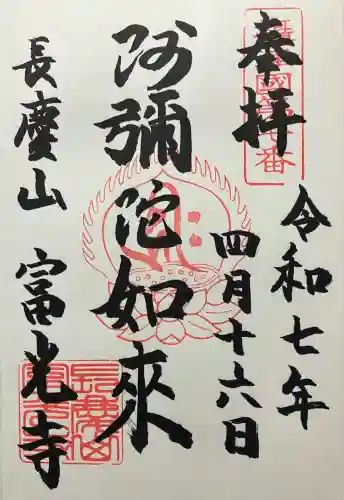 奉拝
令和七年
四月十六日
阿彌陀如來
長慶山
富光寺